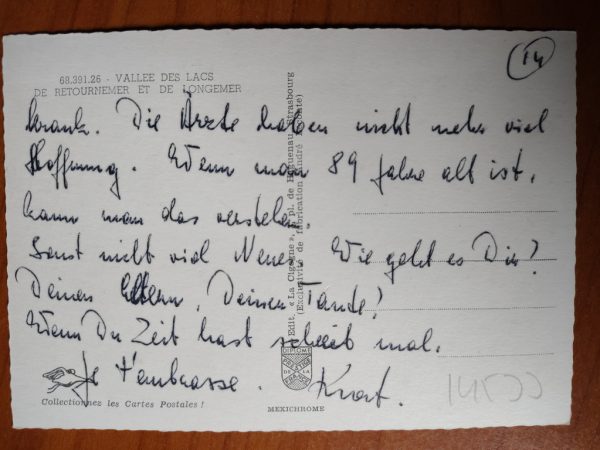 14
68.391.26 - VALLEE DES LACS
DE RETOURNEMER ET DE LONGEMER
krank. Die Ärzte haben nicht mehr viel
Hoffnung. Wenn man 89 Jahre alt ist,
kann man das verstehen.
Sonst nicht viel Neues. Wie geht es Dir?
Deinen Eltern, Deiner Tante?
Wenn Du Zeit hast schreib mal.
Je t'embrasse. Knut.
Edit. « La Cigogne », pl. de Haguenau, Strasbourg
(Exclusivité de fabrication André
DIPLOME
PRESTIGE
DE LA
FRANCE
Collectionnez les Cartes Postales !
MEXICHROME